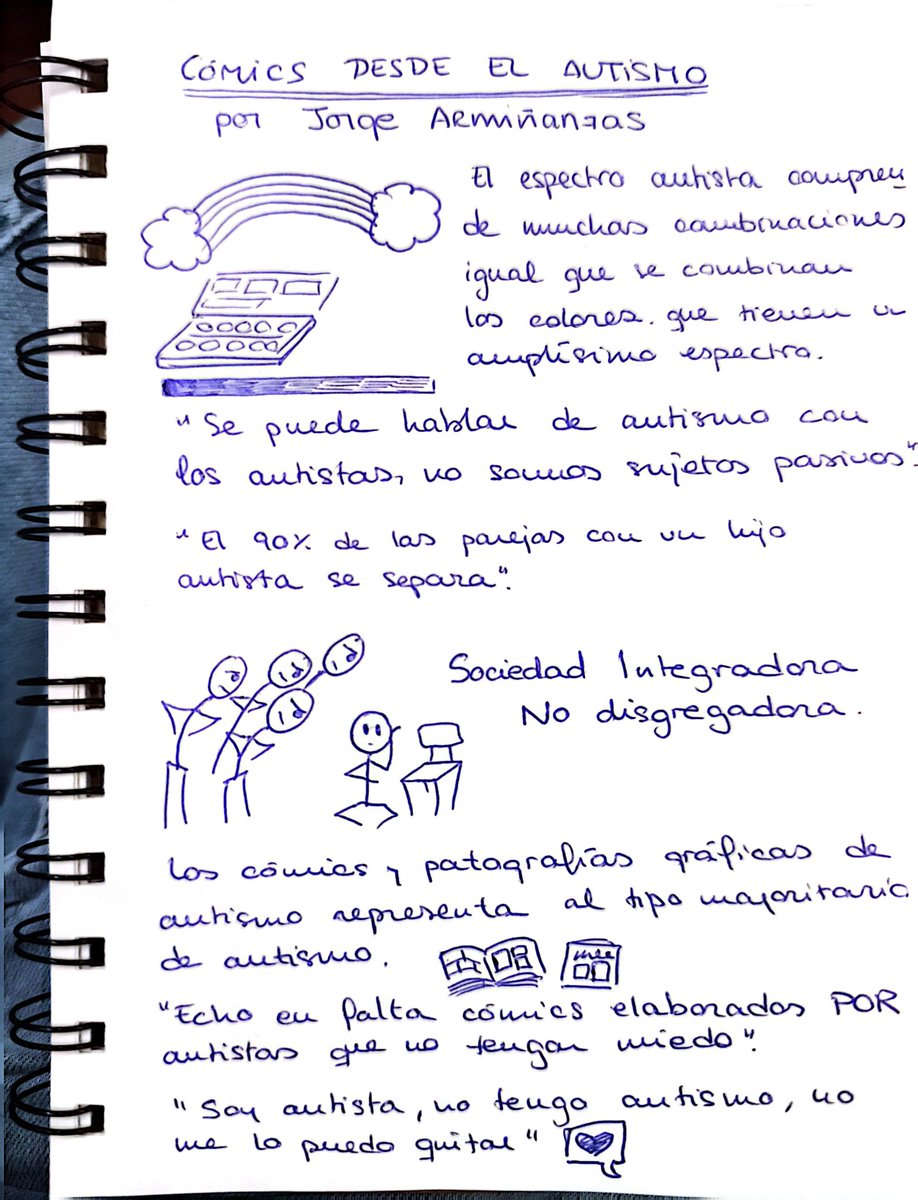 CÓMICS DESDE EL AUTISMO
por Jorge Armiñanzas
El espectro autista compren
de muchas combinaciones
igual que se combinan
los colores. que tienen un
amplísimo espectro.
"Se puede hablar de autismo con
los autistas, no somos sujetos pasivos".
"El 90% de las parejas con un hijo
autista se separa".
Sociedad Integradora
No disgregadora.
Los cómics y patografías gráficas de
autismo representa al tipo mayoritario
de autismo.
"Echo en falta cómics elaborados POR
autistas que no tengan miedo".
"Soy autista, no tengo autismo, no
me lo puedo quitar"